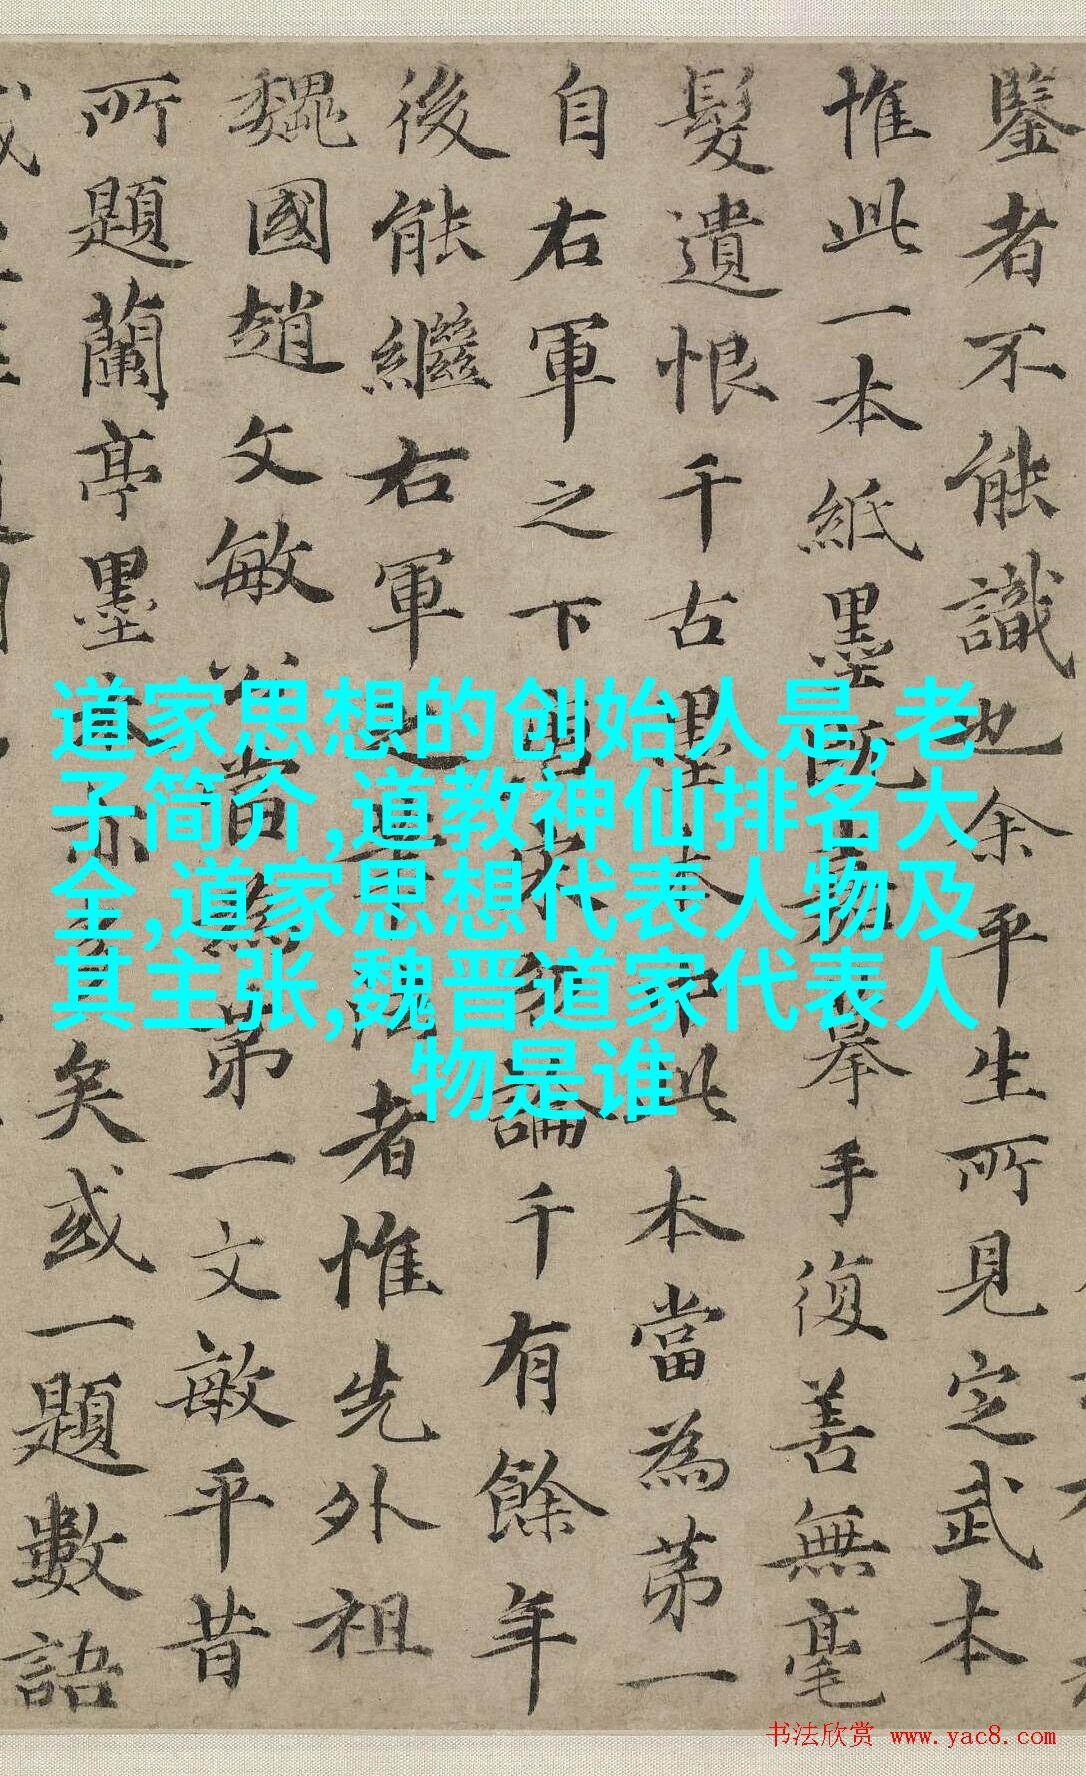 道家思想的创始人是,老
子简介,道教神仙排名大
全,道家思想代表人物及
其主张,魏晋道家代表人
物是谁
鑒者不能識也余平生所見定武本
惟此一本紙墨既勝摹手復善無毫
髮遺恨千古墨本中此本當為苐一
自右軍之下論千有餘年
後能繼右軍之筆法者惟先外祖
魏國趙文敏公當為苐一文敏平昔
所題蘭亭墨本亦多矣或一題數語
书法欣赏 www.yac8.com